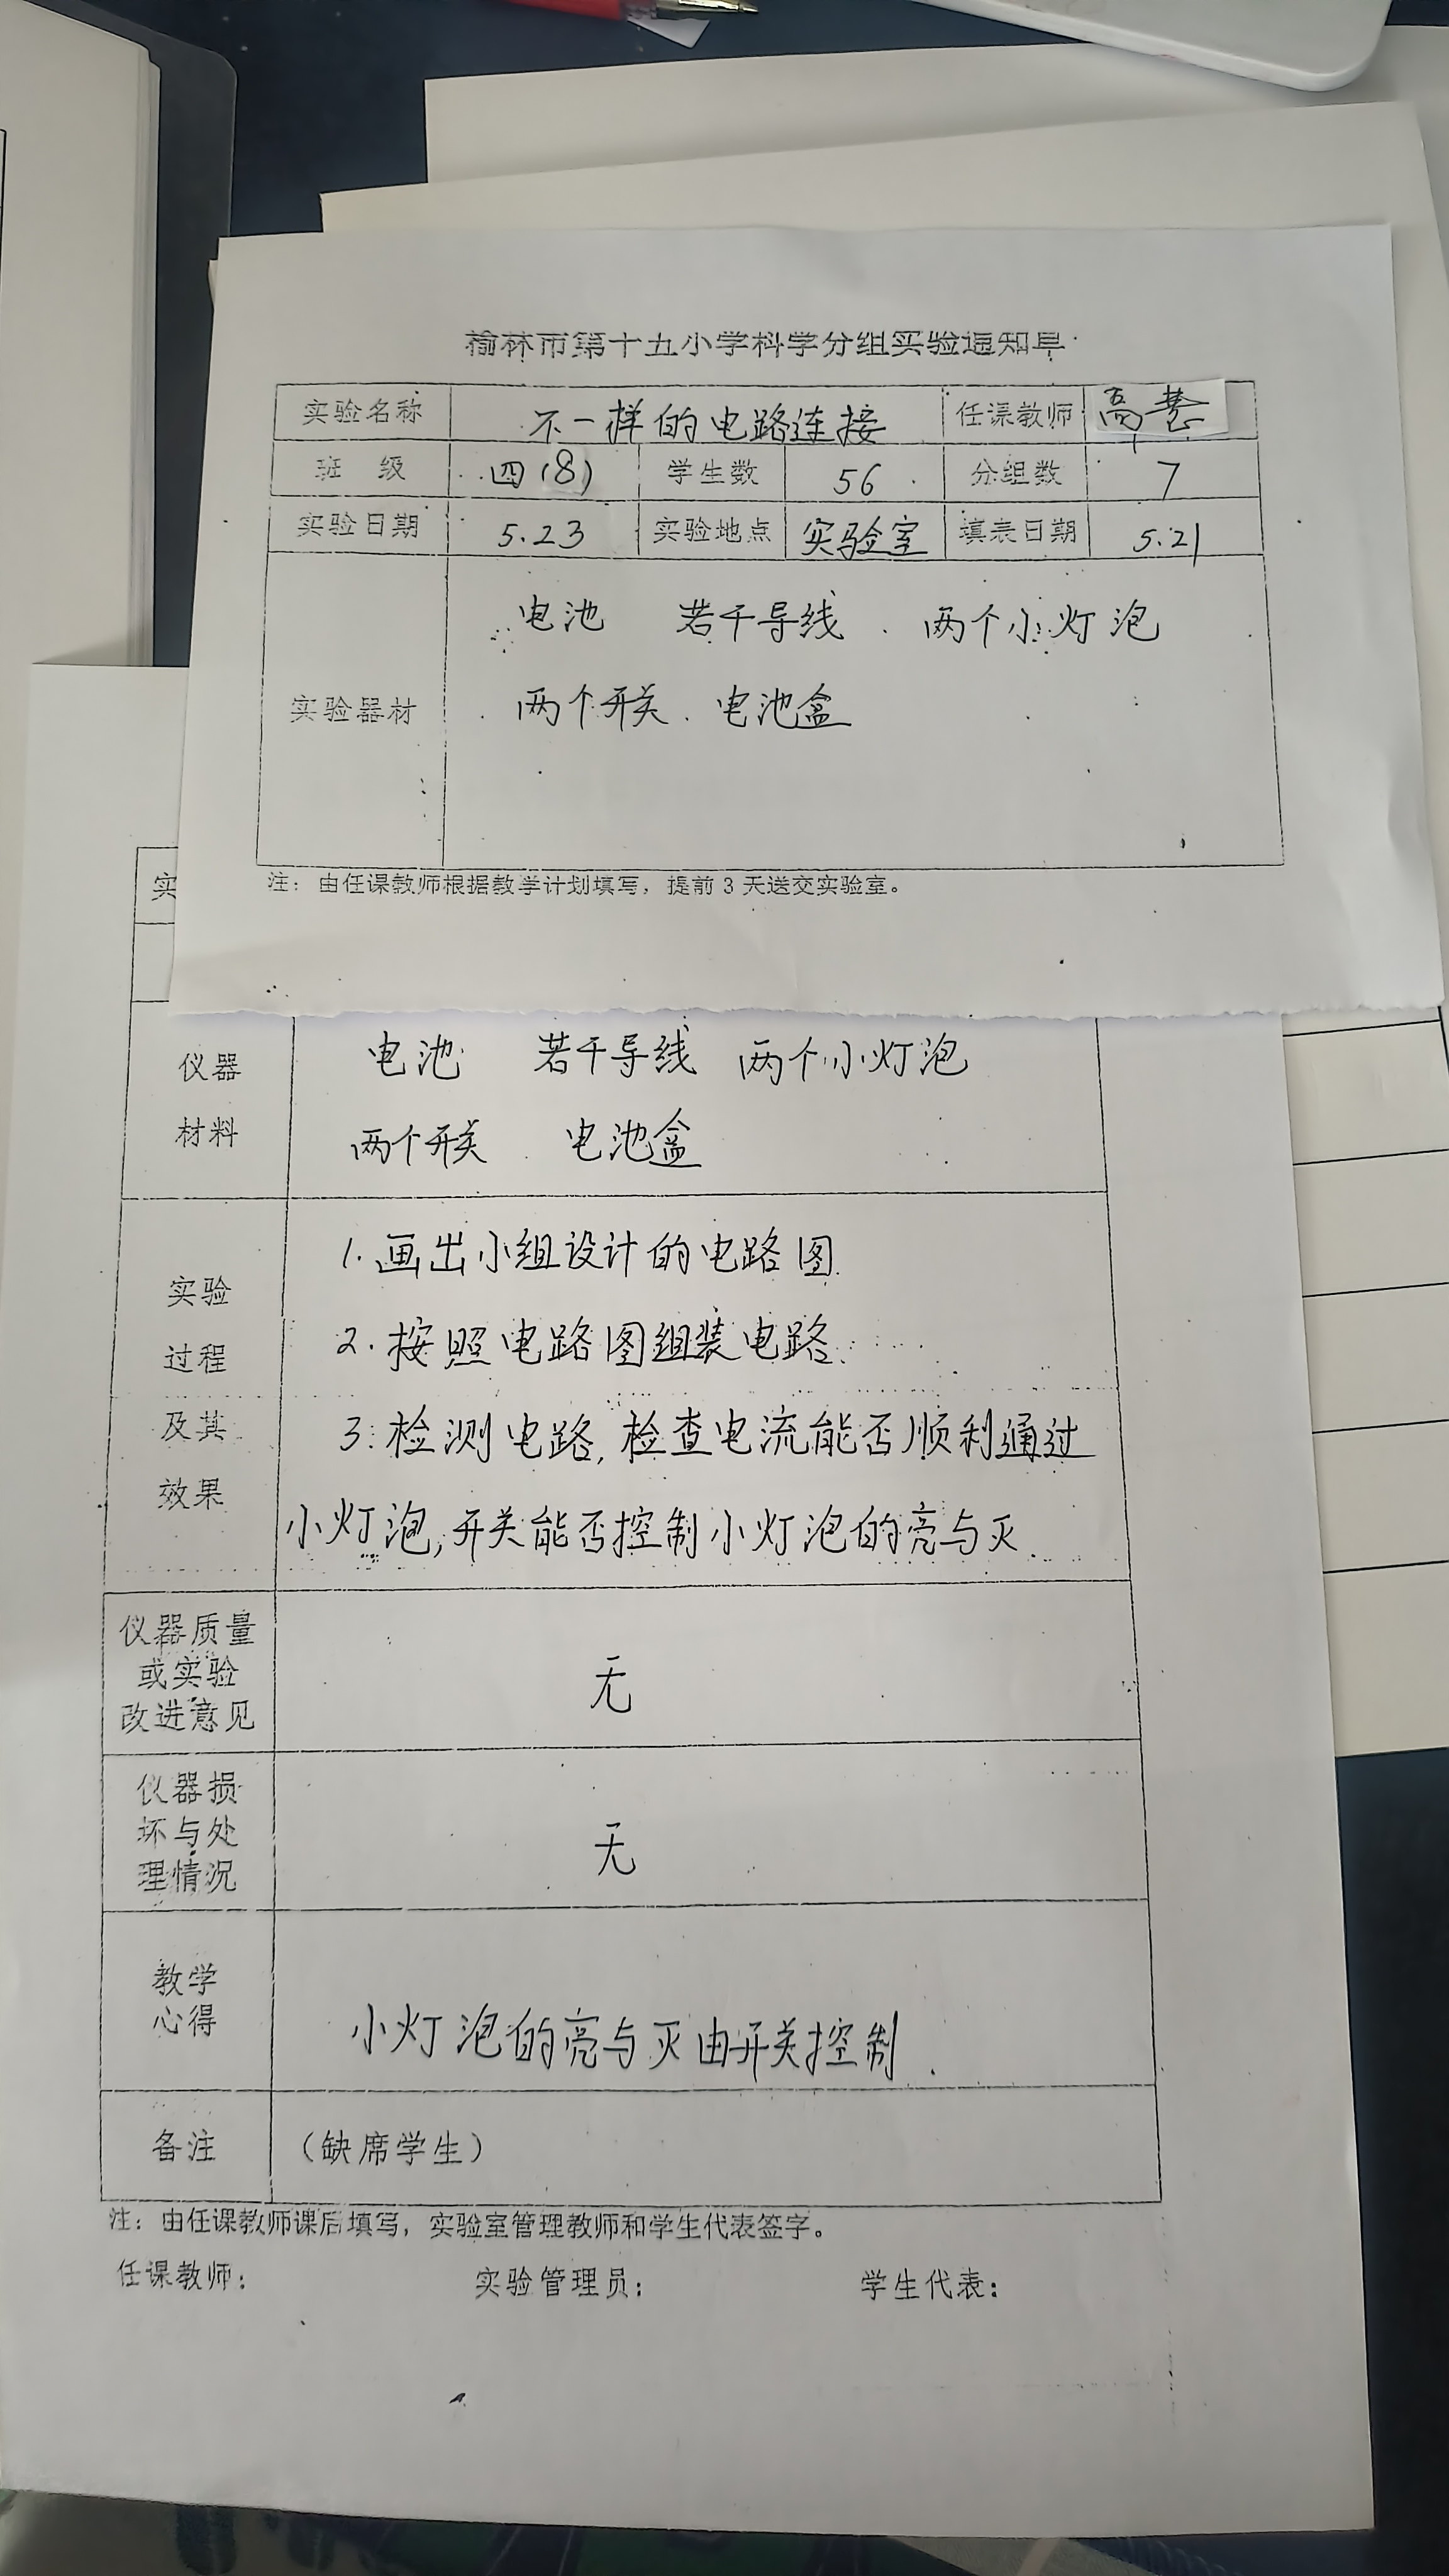 榆林市第十五小学科学分组实验通知单
实验名称 不一样的电路连接 任课教师 高慧
班 级 四(8) 学生数 56 分组数 7
实验日期 5.23 实验地点 实验室 填表日期 5.21
实验器材 电池 若干导线 两个小灯泡
两个开关 电池盒
注：由任课教师根据教学计划填写，提前3天送交实验室。
实
仪器 电池 若干导线 两个小灯泡
材料 两个开关 电池盒
实验 1.画出小组设计的电路图.
过程 2.按照电路图组装电路.
及其 3.检测电路,检查电流能否顺利通过
效果 小灯泡,开关能否控制小灯泡的亮与灭.
仪器质量
或实验 无
改进意见
仪器损
坏与处 无
理情况
教学
心得 小灯泡的亮与灭由开关控制.
备注 （缺席学生）
注：由任课教师课后填写，实验室管理教师和学生代表签字。
任课教师： 实验管理员： 学生代表：